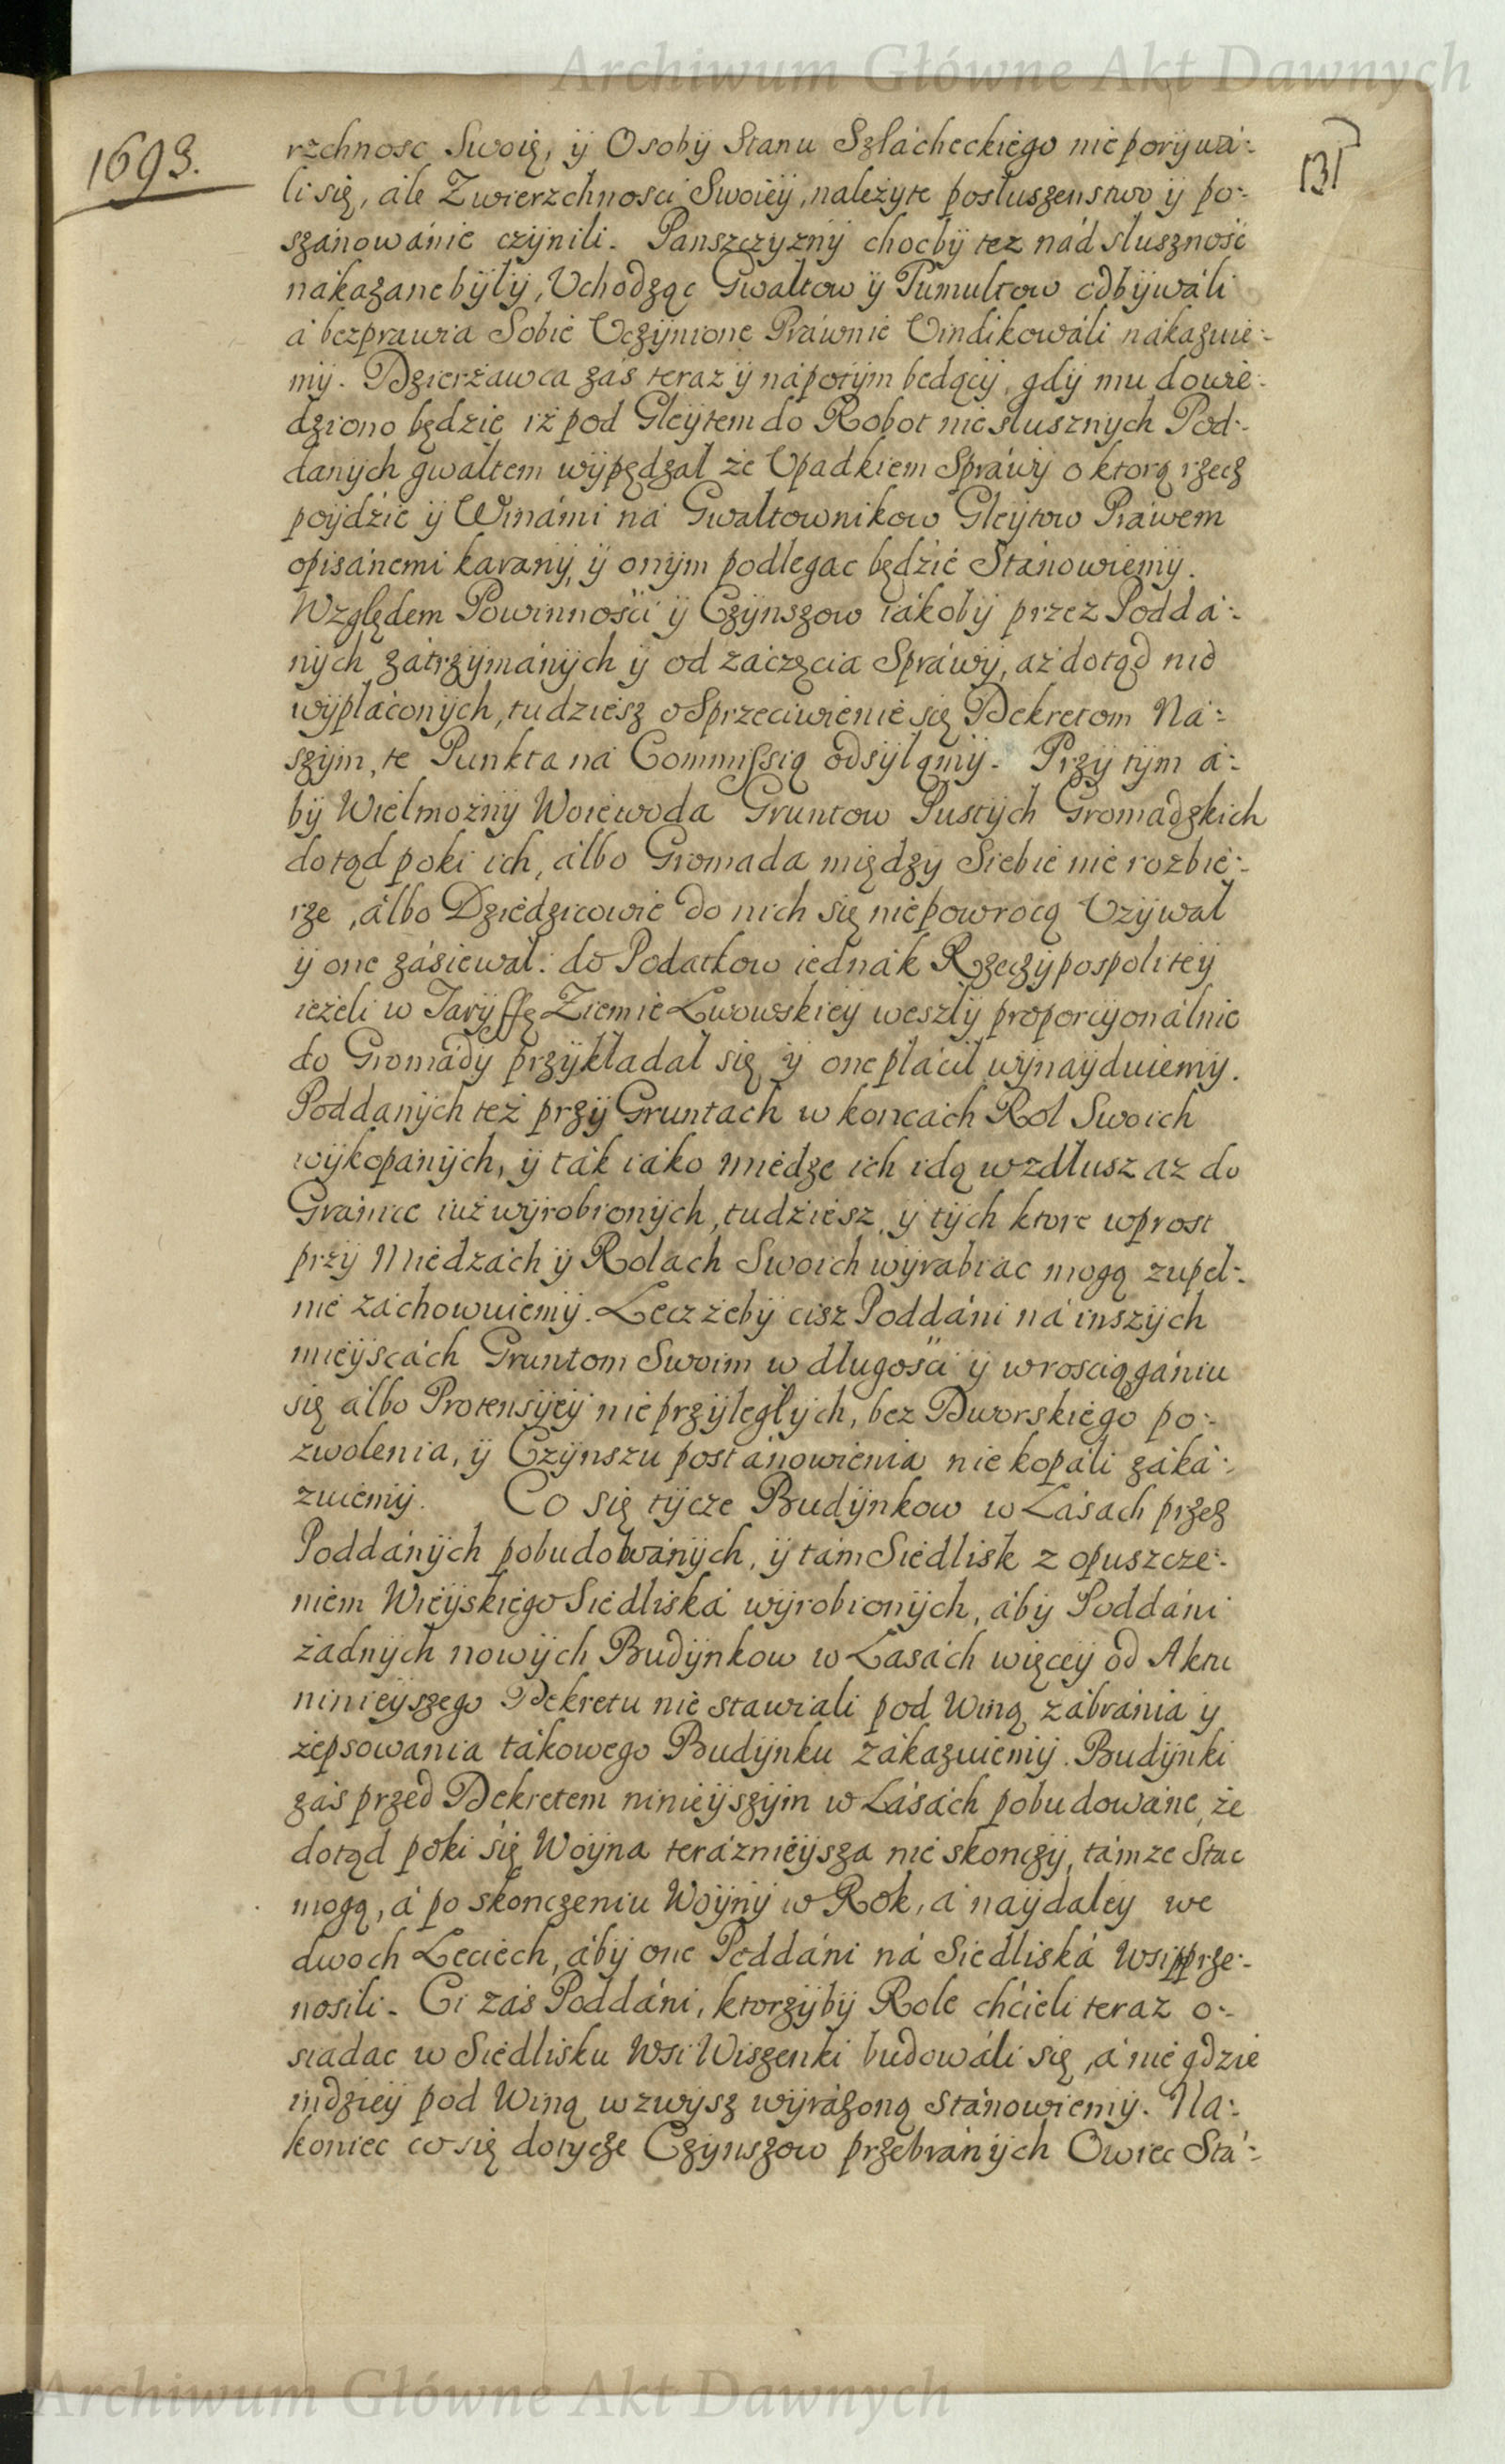 Archiwum Główne Akt Dawnych
1693.
131
rzchnosc Swoię, ÿ Osobÿ Stanu Szlácheckiégo nié porÿwá-:
li się, ále Zwierzchnosci Swoiéÿ, należÿte posłuszenstwo ÿ po-:
szánowánié czÿnili. Panszczÿznÿ chocbÿ tez nád słusznosc
nákazane bÿłÿ, Vchodząc Gwałtow ÿ Tumultow odbÿwáli
á bezprawia Sobié Vczÿnione Práwnié Vindikowáli nákazuié-:
mÿ. Dzierżawca zás teraz ÿ nápotÿm będącÿ, gdÿ mu dowié-:
dziono będzié iż pod Gleÿtem do Robot niésłusznÿch Pod-:
danÿch gwałtem wÿpędzał że Vpadkiem Spráwÿ o ktorą rzecz
poÿdzié ÿ Winámi ná Gwałtownikow Gleÿtow Práwem
opisánemi karanÿ, ÿ onÿm podlegac będzié Stánowiémÿ.
Względem Powinnosći ÿ Czÿnszow iákobÿ przez Poddá-:
nÿch zátrzÿmánÿch ÿ od záczęcia Spráwÿ, aż dotąd nié
wÿpłáconÿch, tudziész o Sprzeciwiénié się Dekretom Ná-:
szÿm, te Punkta ná Commissią odsÿłąmÿ. Przÿ tÿm á-:
bÿ Wiélmożnÿ Woiéwoda Gruntow Pustÿch Gromadzkich
dotąd poki ich, álbo Gromada międzÿ Siebié nié rozbié-:
rze, álbo Dziédzicowié do nich się niépowrocą Vzÿwał
ÿ one zásiewał: do Podatkow iednák Rzeczÿpospolitéÿ
ieżeli w Tarÿffę Ziemié Lwowskiéÿ weszłÿ proporcÿonálnié
do Gromádÿ przÿkładał się ÿ one płácił wÿnaÿduiemÿ.
Poddanÿch też przÿ Gruntach w koncách Rol Swoich
wÿkopánÿch, ÿ ták iáko miedze ich idą wzdłusz az do
Gránic iuż wÿrobionÿch, tudziész ÿ tÿch ktore wprost
przÿ Miédzách ÿ Rolach Swoich wÿrabiac mogą zupeł-:
nié záchowuiémÿ. Lecz żebÿ cisz Poddáni ná inszÿch
miéÿscách Gruntom Swoim w długosći ÿ w rosciągániu
się álbo Protensÿéÿ nié przÿległÿch, bez Dworskiégo po-:
zwolenia, ÿ Czÿnszu postánowiénia nié kopáli záká-:
zuiémÿ. Co się tÿcze Budÿnkow w Lásach przez
Poddánÿch pobudowánÿch, ÿ tám Siédlisk z opuszcze-:
niém Wiéÿskiégo Siédliská wÿrobionÿch, ábÿ Poddáni
żadnÿch nowÿch Budÿnkow w Lasách więcéÿ od Aktu
niniéÿszego Dekretu nié stawiali pod Winą zábránia ÿ
zepsowania tákowego Budÿnku zákazuiémÿ. Budÿnki
zás przed Dekretem niniéÿszÿm w Lásách pobudowáne, że
dotąd poki się Woÿna teráznieÿsza nié skonczÿ, támze Stac
mogą, á po skonczeniu Woÿnÿ w Rok, á naÿdaléÿ we
dwoch Leciech, ábÿ one Poddáni ná Siedliská Wsi prze-:
nosili. Ci zás Poddáni, ktorzÿbÿ Role chćieli teraz o-:
siadac w Siédlisku Wsi Wiszenki budowáli się, á nié gdzié
indziéÿ pod Winą wzwÿsz wÿrážoną Stánowiemÿ. Na-:
koniec co się dotÿcze Czÿnszow przebránÿch Owiec Stá-:
Archiwum Główne Akt Dawnych